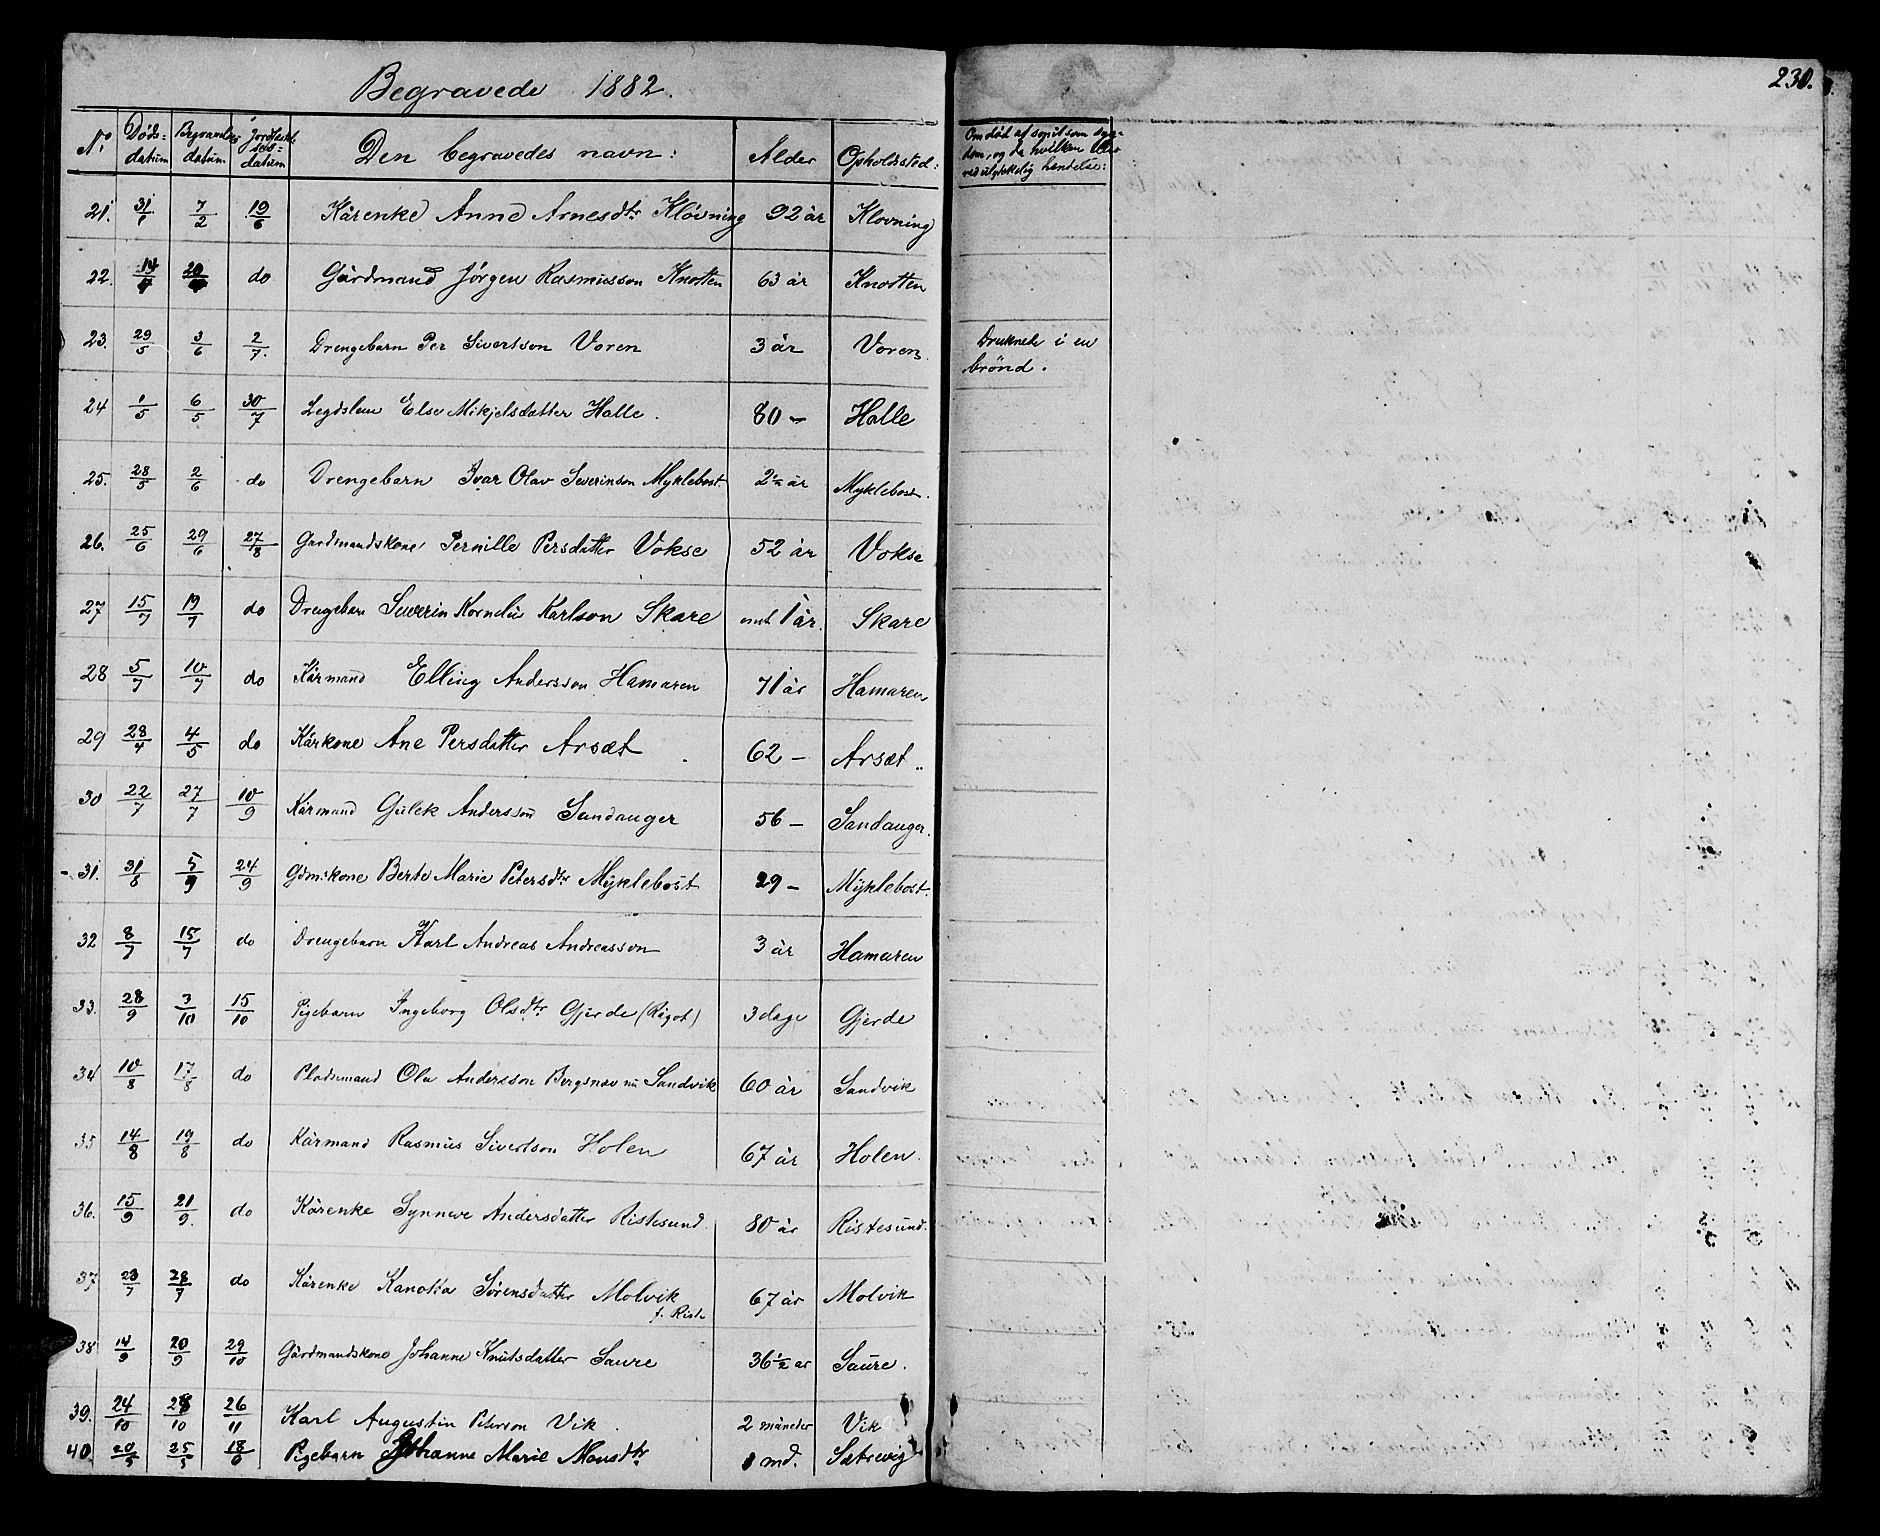 Begravede 1882.
230.
No. Døds-datum Begravelses datum Jordfæstelses-datum Den begravedes navn: Alder Opholdssted: Om død af sopitsom sygdom, og da hvilken eller ved ulykkelig hendelse:
21. 31/1 7/2 19/6 Kårenke Anne Arnesdtr Kløvning 92 år Klovning
22. 14/4 20/4 do Gårdmand Jørgen Rasmusson Knotten 63 år Knotten
23. 29/5 3/6 2/7. Drengebarn Per Sivertson Voren 3 år Voren. Druknede i en
brönd.
24 1/5 6/5 30/7 Legdslem Else Mikjelsdatter Halle. 80 - Halle
25. 28/5 2/6 do Drengebarn Ivar Olav Severinson Myklebost. 2½ år Myklebost.
26. 25/6 29/6 27/8 Gardmandskone Pernille Persdatter Vokse 52 år Vokse
27 15/7 19/7 do Drengebarn Severin Kornelius Karlson Skare omt 1 år. Skare
28 5/7 10/7 do Kårmand Elling Andersson Hamaren 71 år Hamaren
29 28/4 4/5 do Kårkone Ane Persdatter Arsæt 62 - Arsæt
30 22/7 27/7 10/9 Kårmand Gulek Andersson Sandanger 56 - Sandanger.
31. 31/8 5/9 24/9 Gdmskone Berte Marie Petersdtr Myklebost 29 - Myklebost.
32 8/7 15/7 do Drengebarn Karl Andreas Andreasson 3 år Hamaren
33. 28/9 3/10 15/10 Pigebarn Ingeborg Olsdtr Gjerde (Rågot) 3 dage Gjerde
34 10/8 17/8 do Pladsmand Ola Andersson Bergsnæv nu Sandvik 60 år Sandvik
35 14/8 19/8 do Kårmand Rasmus Sivertson Holen 67 år Holen.
36. 15/9 21/9. do Kårenke Synneve Andersdatter Ristesund. 80 år Ristesund.
37 23/7 28/7 do Kårenke Kanoka Sörensdatter Molvik 67 år Molvik
f. Riste
38 14/9 20/9 29/10 Gårdmandskone Johanne Knutsdatter Saure 36½ ar Saure.
39. 24/10 28/10 26/11 Karl Augustin Peterson Vik. 2 måneder Vik
40. 20/5 25/5 18/6 Pigebarn Johanne Marie Monsdtr 1 md. Sætrevig